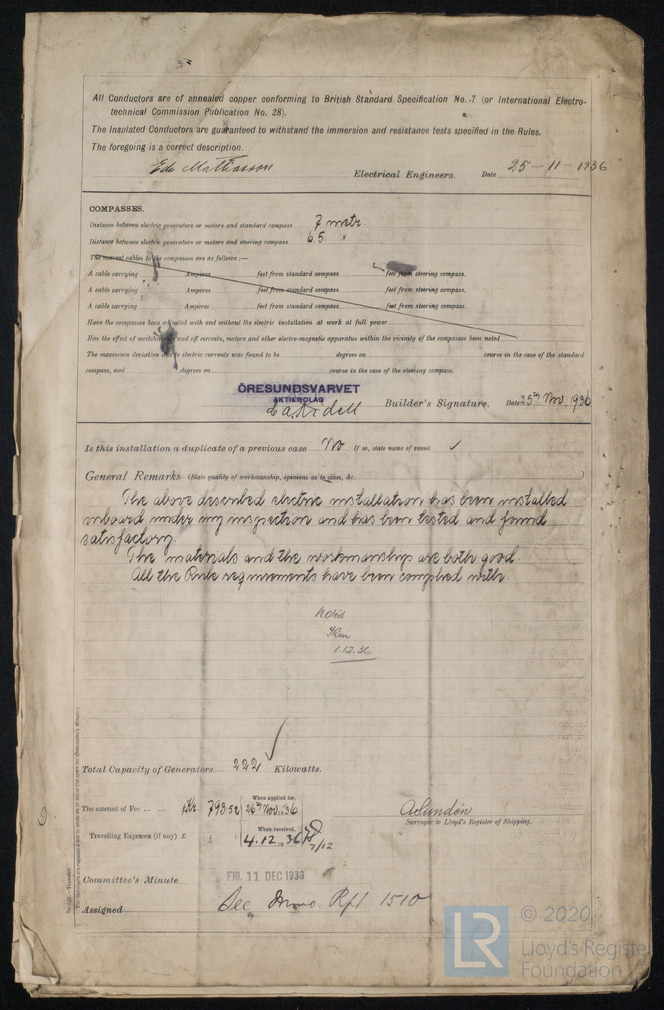 All Conductors are of annealed copper conforming to British Standard Specification No. 7 (or International Electro-
technical Commission Publication No. 28).
The Insulated Conductors are guaranteed to withstand the immersion and resistance tests specified in the Rules.
The foregoing is a correct description.
Electrical Engineers. Date 25-11-1936
COMPASSES.
Distance between electric generators or motors and standard compass 7 metr.
Distance between electric generators or motors and steering compass 6.5 "
The nearest cables to the compasses are as follows:—
A cable carrying Ampères feet from standard compass feet from steering compass.
A cable carrying Ampères feet from standard compass feet from steering compass.
A cable carrying Ampères feet from standard compass feet from steering compass.
Have the compasses been adjusted with and without the electric installation at work at full power
Has the effect of switching on and off circuits, motors and other electro-magnetic apparatus within the vicinity of the compasses been noted
The maximum deviation due to electric currents was found to be degrees on course in the case of the standard
compass, and degrees on course in the case of the steering compass.
ÖRESUNDSVARVET
AKTIEBOLAG
Builder's Signature. Date 25th Nov. 1936
Is this installation a duplicate of a previous case No If so, state name of vessel ✓
General Remarks (State quality of workmanship, opinions as to class, &c.)
The above described electric installation has been installed
onboard under my inspection and has been tested and found
satisfactory.
The materials and the workmanship are both good.
All the Rule requirements have been complied with.
Noted
1.12.36
Total Capacity of Generators 222 Kilowatts.
When applied for,
The amount of Fee ... ... Kr 793.52 26th Nov. 36.
A. Lundén
Surveyor to Lloyd's Register of Shipping.
When received,
Travelling Expenses (if any) £ : : 4.12.1936 7/12
Committee's Minute FRI. 11 DEC 1936
Assigned See Rpt 1510
LR
© 2020
Lloyd's Register
Foundation